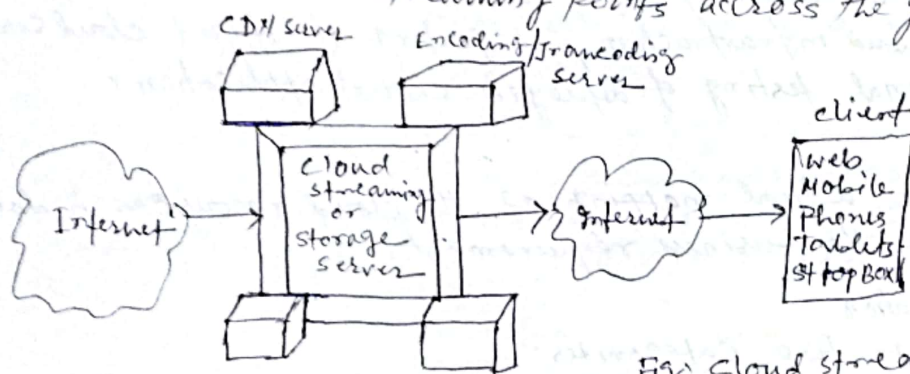 points across the
CDN server
Encoding/Trancoding
server
client
Internet
Cloud
streaming
or
storage
server
Internet
Web
Mobile
Phones
Tablets
St top Box
Fig: Cloud strea